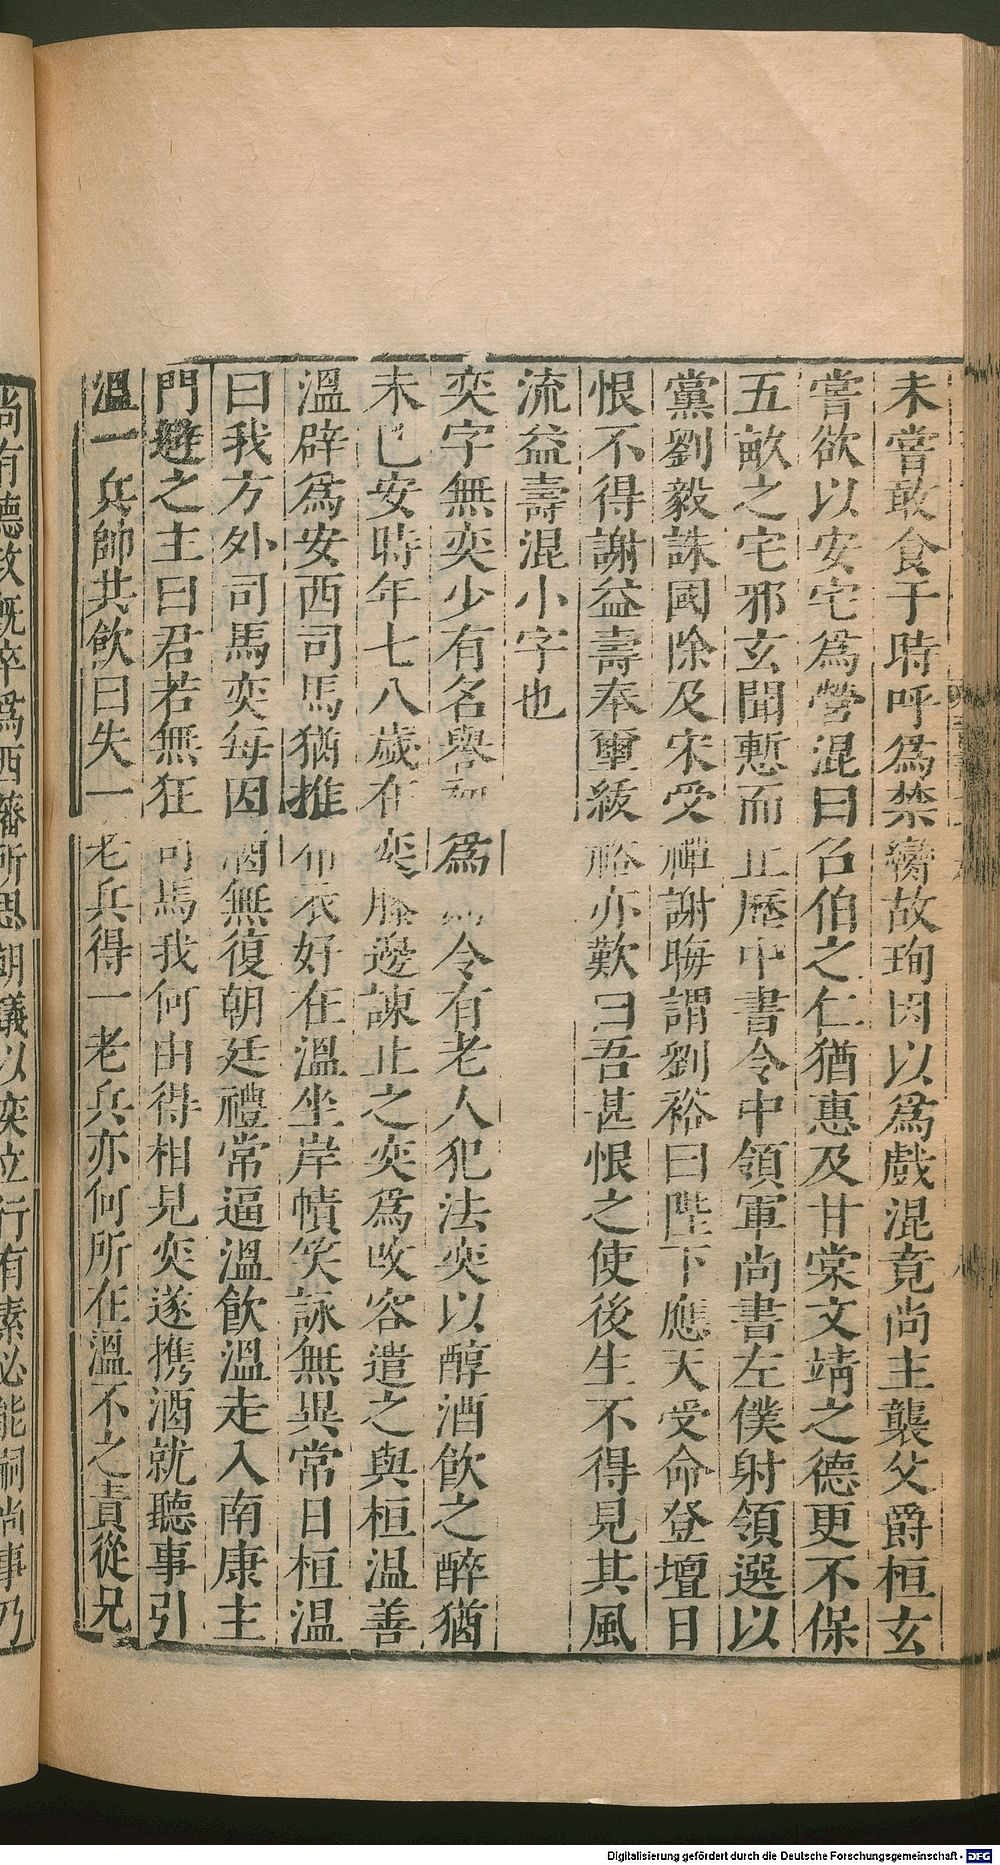 未嘗敢食于時呼爲禁臠故珣因以爲戲混竟尚主襲父爵桓玄
嘗欲以安宅爲營混曰召伯之仁猶惠及甘棠文靖之德更不保
五畝之宅邪玄聞慙而止歷中書令中領軍尚書左僕射領選以
黨劉毅誅國除及宋受禪謝晦謂劉裕曰陛下應天受命登壇日
恨不得謝益壽奉璽紱裕亦歎曰吾甚恨之使後生不得見其風
流益壽混小字也
奕字無奕少有名譽 爲 令有老人犯法奕以醇酒飲之醉猶
未已安時年七八歲在奕膝邊諫止之奕爲改容遣之與桓温善
溫辟爲安西司馬猶推布衣好在溫坐岸幘笑詠無異常日桓温
曰我方外司馬奕每因酒無復朝廷禮常逼溫飲溫走入南康主
門避之主曰君若無狂司馬我何由得相見奕遂携酒就聽事引
溫一兵帥共飲曰失一老兵得一老兵亦何所在溫不之責從兄
尚有德政旣卒爲西籓所思朝議以奕立行有素必能嗣尚事乃
Digitalisierung gefördert durch die Deutsche Forschungsgemeinschaft - DFG